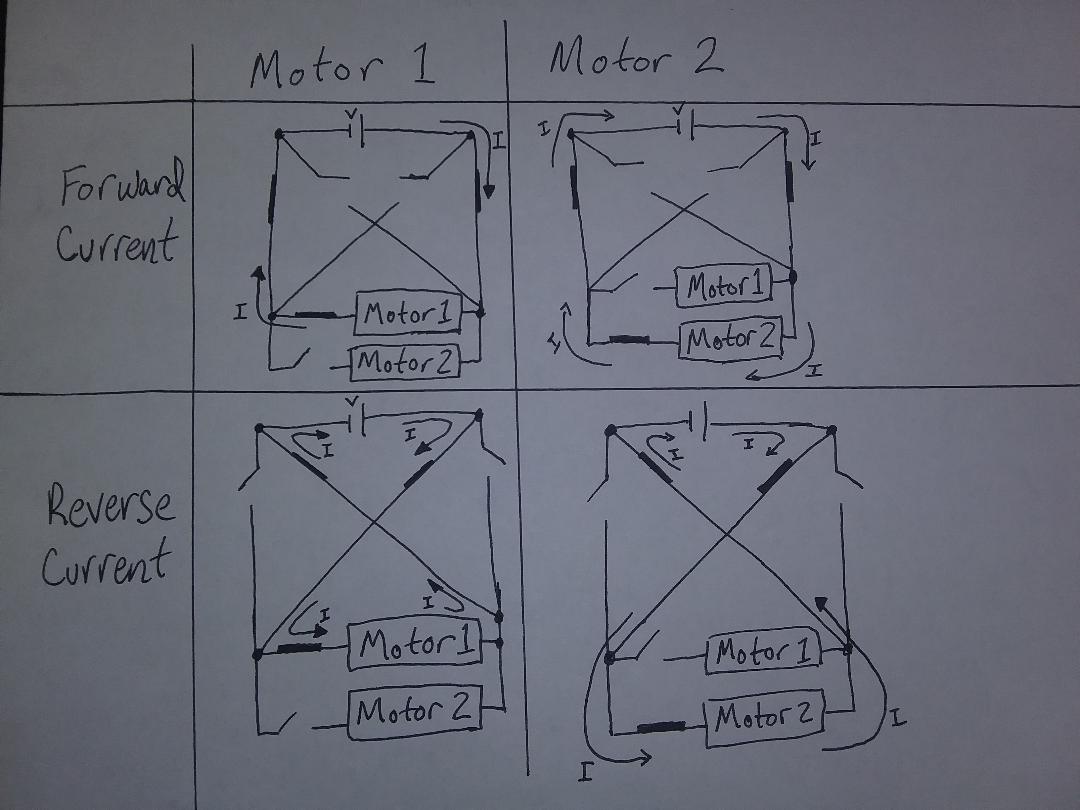 Motor 1
Motor 2
Forward
Current
V
I
I
Motor 1
Motor 2
I
V
I
I
Motor 1
Motor 2
I
Reverse
Current
V
I
I
I
I
Motor 1
Motor 2
I
I
Motor 1
Motor 2
I
I